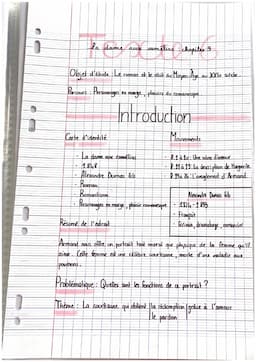 Texte 6
La dame aux camélias chapitre 3
Objet d'étude : Le roman et le récit du Moyen-Âge au XXIe siècle.
Parcours : Personnages en marge, plaisirs du romanesque.
Introduction
Carte d'identité
- La dame aux camélias
- 1848
- Alexandre Dumas fils
- Roman
- Romantisme
- Personnages en marge, plaisir romanesque
Mouvements
Une vision d'amour
La description de Marguerite
L'aveuglement d'Armand
Alexandre Dumas fils
- 1824 - 1895
- Français
- Écrivain, dramaturge, romancier
Résumé de l'extrait
Armand nous offre un portrait tant moral que physique de la femme qu'il
aime. Cette femme est une célèbre courtisane, morte d'une maladie aux
poumons.
Problématique : Quelles sont les fonctions de ce portrait ?
Thème : La courtisane qui obtient la rédemption grâce à l'amour
le pardon